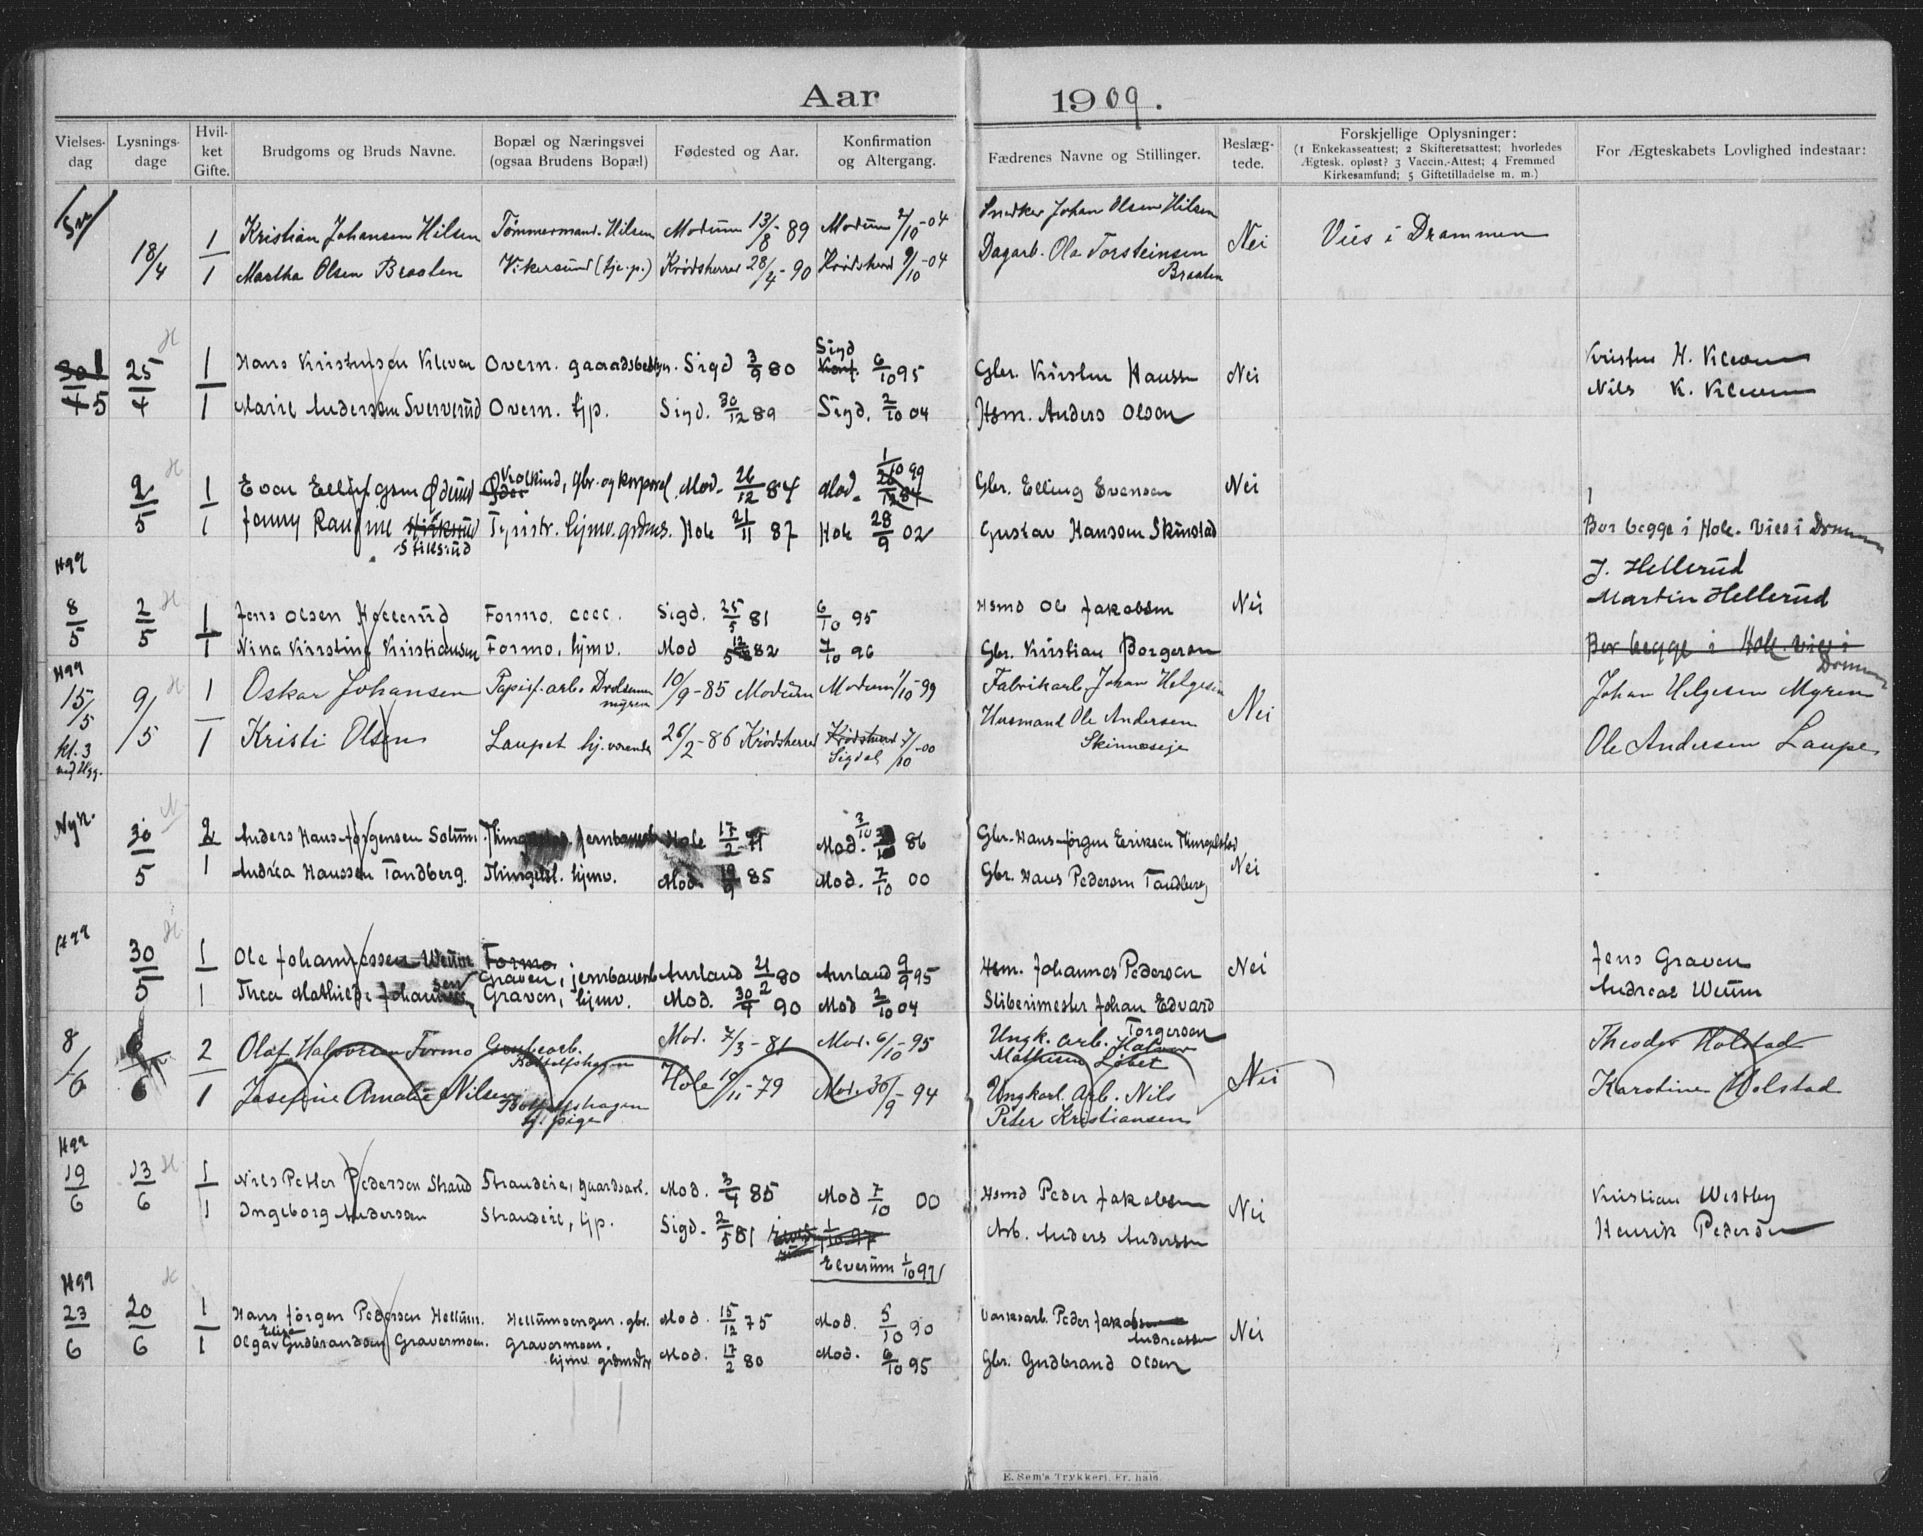 Aar 1909.
Vielsesdag
Lysningsdage
Hvilket Gifte.
Brudgoms og Bruds Navne.
Bopæl og Næringsvei (ogsaa Brudens Bopæl)
Fødested og Aar.
Konfirmation og Altergang.
Fædrenes Navne og Stillinger.
Beslægtede.
Forskjellige Oplysninger:
(1 Enkekasseattest; 2 Skifteretsattest; hvorledes Ægtesk. opløst? 3 Vaccin.-Attest; 4 Fremmed Kirkesamfund; 5 Giftetilladelse m. m.)
For Ægteskabets Lovlighed indestaar:
18/4 1 Kristian Johansen Hilsen Tømmermand. Hilsen Modum 13/8 89 Modum 2/10-04 Snedker Johan Olsen Hilsen Nei Vies i Drammen
1 Martha Olsen Braaten Vikersund (tje.p.) Krødsherred 28/4-90 Krødsherd 9/10-04 Dagarb. Ola Torsteinsen Braaten
25/4 1 Hans Kristensen Kleven Overn. gaardsbestyr. Sigd 3/9 80 Sigd 6/10 95 Gbr. Kristen Hansen Nei Kristen H. Kleven
1 Marie Anderssen Sververud Overn. tjp. Sigd. 30/12 89 Sigd. 2/10 04 Hsm. Anders Olsen Nils K. Kleven
2/5 1 Evar Ellingsen Øderud gbr. og korporal. Mod. 26/12 84 Mod. 1/10 99 Gbr. Elling Evensen Nei
1 Jenny Ragine Stiksrud Tyristr. hjmv. grdms. Hole 21/11 87 Hole 28/9 02 Gustav Hansen Skinstad Bor begge i Hole. Vies i Drmmn
Hgg
8/5 2/5 1 Jens Olsen Hellerud Formo, cell. Sigd. 25/5 81 6/10 95 Hsmd Ole Jakobsen Nei J. Hellerud
Martin Hellerud
1 Nina Kirstine Kristiansen Formo, hjmv. Mod 12/5 82 7/10 96 Gbr. Kristian Borgersen Bor begge i Hole. Vies i Drmmn
Hgg
15/5 kl. 3 9/5 1 Oskar Johansen Papirf.arb. Drolsummyren 10/9-85 Modum Modum 1/10-99 Fabrikarb. Johan Helgesen Nei Johan Helgesen Myren
1 Kristi Olsen Laupet hj.værende 26/2-86 Krødsherred Krødsherred Sigdal 7/10-00 Husmand Ole Andersen Skinneseje Ole Andersen Laupe
30/5 2 Anders Hans-Jørgensen Solum Hole 17/2 Mod. 3/10 86 Gbr. Hans-Jørgen Eriksen Thingelstad Nei
1 Andrea Hanssen Tandberg. Thingelst. hjmv. Mod. 19/9 85 Mod. 7/10 00 Gbr. Hans Pedersen Tandberg
Hgg
30/5 1 Ole Johannessen Weum Formo Graven, jernbanearb Aurland 21/2 80 Aurland 9/9 95 Hsm. Johannes Pedersen Nei Jens Graven
1 Thea Mathilde Johansen Graven, hjmv. Mod. 30/9 90 Mod 2/10 04 Sliberimester Johan Edvard Torgersen Andreas Weum
8/6 6/6 2 Olaf Halvorsen Formo Grubearb. Mod. 7/3-81 Mod. 6/10-95 Ungk. arb. Halvor Mathisen Løbet Nei Theodor Holstad
1 Josefine Amalie Nilsen tj. pige Hole 19/11-79 Mod. 30/9-94 Ungkarl. Arb. Nils Peter Kristiansen Karoline Holstad
Hgg
19/6 13/6 1 Nils Petter Pedersen Strand Strandeie, gaardsarb. Mod. 3/4 85 Mod 7/10 00 Hsmd Peder Jakobsen Nei Kristian Westby
1 Ingeborg Anderssen Strandeie, tjp. Sigd. 2/5 81 Elverum 1/10 97 Arb. Anders Andersen Henrik Pedersen
Hgg
23/6 20/6 1 Hans Jørgen Pedersen Hellum. Hellumsengen. gbr. Mod. 15/12 75 Mod. 5/10 90 Verksarb. Peder Andreassen Nei
1 Olga Elise Gudbrandsen Gravermoen. Gravermoen. hjmv. Mod. 17/2 80 Mod. 6/10 95 Gbr. Gudbrand Olsen
E. Sem's Trykkeri. Fr. hald.